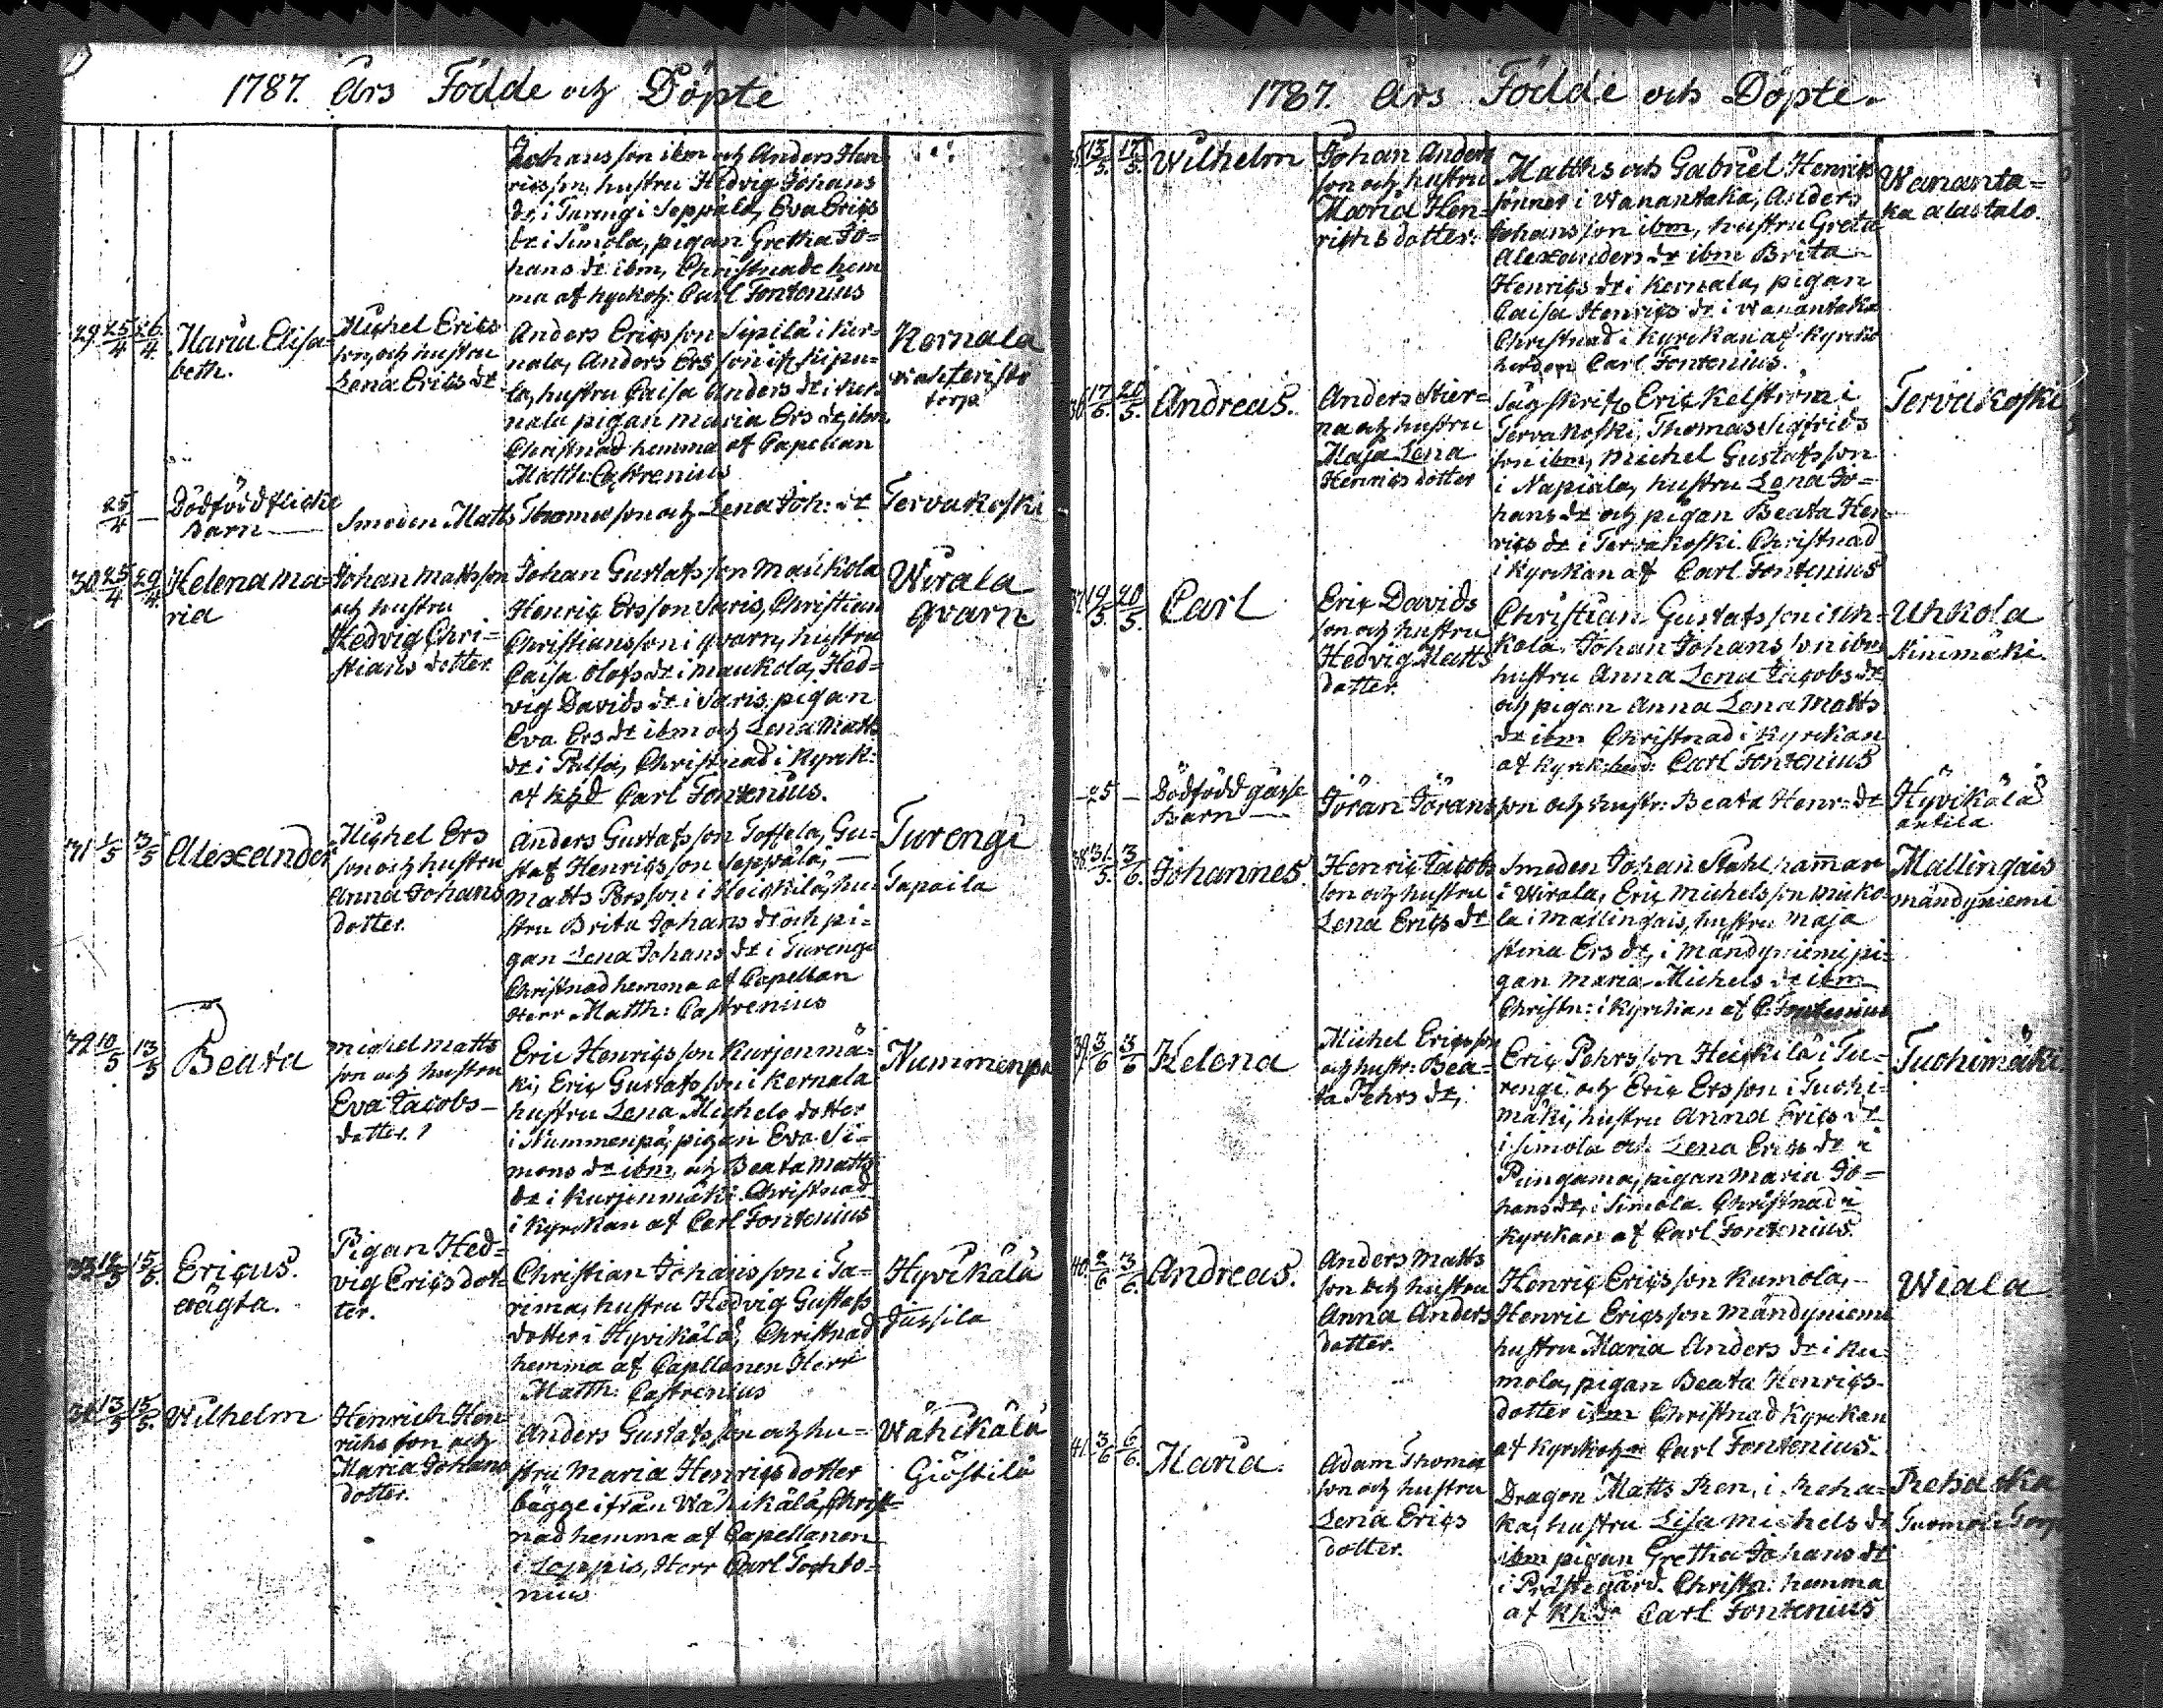 1787. Års Födde och Döpte
Johansson ibm och Anders Hen
ricsson, hustru Hedvig Johans
dr i Turengi Seppälä, Eva Erics
dr i Simola, pigan Gretha Jo=
hans dr ibm, Christnade hem
ma af kyrkoh: Carl Fontenius
29 25/4 26/4 Maria Elisa=
beth.
Michel Erics
son och hustru
Lena Erics dr
Anders Ericsson Sipilä i Ker=
nala, Anders Ersson
la, hustru Caisa Anders dr i Ker
nala pigan Maria Ers dr ibm
Christnad hemma af Capellan
Matth: Castrenius
Kernala
torp
25/4 — Dödfödd flicke
Barn —
Smeden Matts Thomasson och Lena Joh: dr
Tervakoski
30 25/4 29/4 Helena Ma=
ria
Johan Mattsson
och hustru
Hedvig Chri=
stians dotter.
Johan Gustafsson Maukola
Henric Ersson Saris, Christian
Christiansson i qvarn, hustru
Caisa Olofs dr i Maukola, Hed=
vig Davids dr i Saris, pigan
Eva Ers dr ibm och Lena Matts
dr i Pulsa, Christnad i Kyrk:
af Carl Fontenius.
Wirala
qvarn
31 1/5 3/5 Alexander
Michel Ers
son och hustru
Anna Johans
dotter.
Anders Gustafsson Toffola, Gu=
staf Henricsson Seppälä, —
Matts Persson i Heickilä, hu
stru Brita Johans dr och pi=
gan Lena Johans dr i Turengi
Christnad hemma af Capellan
Herr Matth: Castrenius
Turengi
Tapaila
32 10/5 13/5 Beata
Michel Matts
son och hustru
Eva Jacobs—
dotter.
Eric Henricsson Kurjenmä=
ki, Eric Gustafsson i Kernala
hustru Lena Michels dotter
i Nummenpä, pigan Eva Si=
mons dr ibm, och Beata Matts
dr i Kurjenmäki. Christnad
i Kyrckan af Carl Fontenius
Nummenpä
33 15/5. Ericus.
oägta.
Pigan Hed=
vig Erics dot=
ter.
Christian Johansson i Ta=
rima, hustru Hedvig Gustafs
dotter i Hyvikälä, Christnad
hemma af Capellanen Herr
Matth: Castrenius
Hyvikälä
Jussila
34 13/5 15/5. Wilhelm
Henrich Hen=
richs son och
Maria Johans
dotter.
Anders Gustafsson och hu=
stru Maria Henricsdotter
bägge ifrån Wähikälä, Christ=
nad hemma af Capellanen
i Loppis, Herr Carl
nius
Wähikälä
Giöstilä
1787. Års Födde och Döpte.
35 13/5. 17/5. Wilhelm
Johan Anders
son och hustru
Maria Hen=
richs dotter.
Matths och Gabriel Henrics
söner i Wanantaka, Anders
Johansson ibm, hustru Greta
Alexanders dr ibm Brita
Henrics dr i Kernala, pigan
Caisa Henrics dr i Wanantaka
Christnad i Kyrckan af Kyrko
herden Carl Fontenius.
Wananta=
ka alastalo.
36 20/5. Andreas.
Anders Stier=
na och hustru
Maja Lena
Henrics dotter
Eric Kelström i
Tervakoski, Thomas Sigfrids
son ibm, Michel Gustafsson
i Napiala, hustru Lena Jo=
hans dr och pigan Beata Hen
rics dr i Tervakoski. Christnad
i Kyrckan af Carl Fontenius
Tervakoski
37 19/5. 20/5. Carl
Eric Davids
son och hustru
Hedvig Matts
dotter.
Christian Gustafsson i Uh=
kola, Johan Johansson ibm
hustru Anna Lena Jacobs dr
och pigan Anna Lena Matts
dr ibm Christnad i Kyrckan
af Carl Fontenius
Uhkola
Kinimäki
25 — Dödfödd gåsse
Barn —
Jöran Jöransson och hustr: Beata Henr: dr
Hyvikälä
38 31/5. 3/6. Johannes.
Henric Jacobs
son och hustru
Lena Erics dr
Smeden Johan Stahlhammar
i Wirala, Eric Michelsson Muko=
la i Mallingais, hustru Maja
Stina Ers dr, i Mändyniemi pi=
gan Maria Michels dr ibm
Christn: i Kyrckan af C: Fontenius
Mallingais
mändyniemi
39. 3/6 3/6 Helena
Michel Ericsson
och hustr: Bea=
ta Pehrs dr,
Eric Pehrsson Heickilä i Tu=
rengi, och Eric Ersson i Tuohi=
mäki, hustru Anna Erics dr
i Simola och Lena Erics dr i
Pungama, pigan Maria Jo=
hans dr, i Simola. Christnad i
Kyrckan af Carl Fontenius.
Tuohimäki.
40. 2/6 3/6. Andreas.
Anders Matts
son och hustru
Anna Anders
dotter.
Henric Ericsson Kumola, —
Henric Ericsson Mändyniemi
hustru Maria Anders dr i Ku=
mola, pigan Beata Henrics=
dotter ibm Christnad Kyrckan
af Carl Fontenius.
Wiala.
41. 3/6 6/6. Maria.
Adam Thomas
son och hustru
Lena Erics
dotter.
Dragon Matts Ren, i Reha=
ka, hustru Lisa Michels dr
ibm pigan Gretha Johans dr
i Prästegård. Christn: hemma
af Carl Fontenius
Rehacka